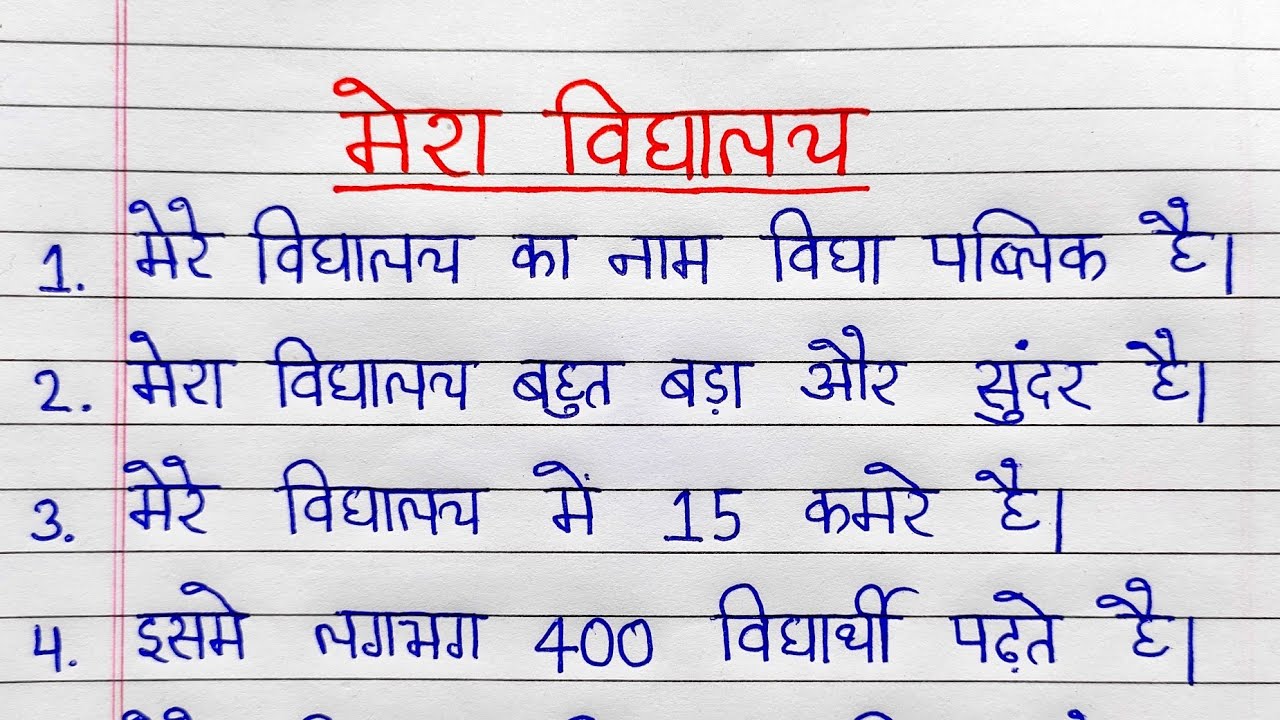 मेरा विद्यालय
1. मेरे विद्यालय का नाम विद्या पब्लिक है।
2. मेरा विद्यालय बहुत बड़ा और सुंदर है।
3. मेरे विद्यालय में 15 कमरे है।
4. इसमे लगभग 400 विद्यार्थी पढ़ते है।